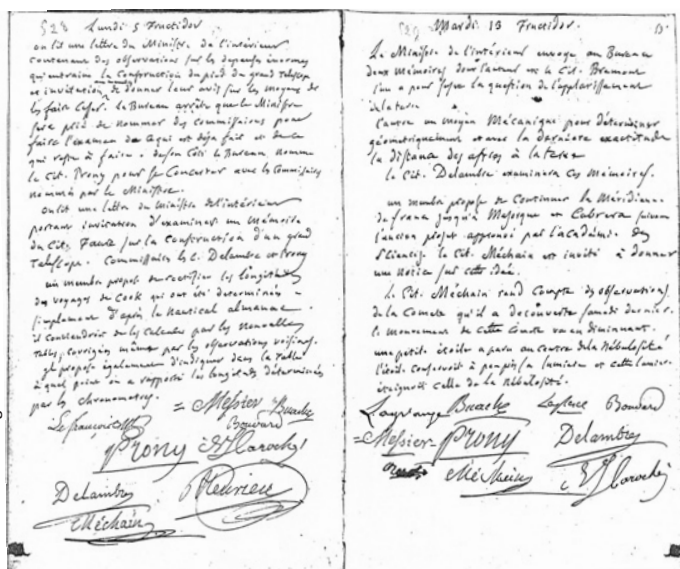 528 Lundi 5 Fructidor
on lit une lettre du Ministre de l'intérieur
contenant des observations sur les depenses énormes
qu'entraine la Construction du pied du grand Telescope
et invitation de donner leur avis sur les moyens de
les faire Cesser. le Bureau arrête que le Ministre
sera prié de nommer des Commissaires pour
faire l'examen de ce qui est déja fait et de ce
qui reste à faire. de son Côté le Bureau nomme
le Cit. Prony pour se Concerter avec les Commissaires
nommés par le Ministre.
on lit une lettre du Ministre de l'intérieur
portant invitation d'examiner un mémoire
du Cit. Faure sur la Construction d'un grand
Telescope. Commissaires les C. Delambre et Prony
un membre propose de rectifier les longitudes
des voyages de Cook qui ont été determinées
simplement d'après le nautical almanac.
il Conviendroit de les Calculer par les nouvelles
Tables, corrigées même par les observations voisines.
il propose également d'indiquer dans la Table
à quel point on a rapporté les longitudes déterminées
par les Chronometres.
Lefrançois = Messier Buache
Bouvard
Prony
Delambre Fleurieu
Méchain
529 Mardi 13 Fructidor.
Le Ministre de l'intérieur envoye au Bureau
deux Mémoires dont l'auteur est le Cit.
l'un a pour sujet la question de l'applatissement
de la terre
l'autre un moyen Mécanique pour déterminer
géometriquement et avec la derniere exactitude
la distance des astres à la terre
le Cit. Delambre examinera Ces Mémoires.
un membre propose de Continuer la Méridienne
de france jusqu'à Majorque et Cabrera suivant
l'ancien projet approuvé par l'académie des
Sciences. le Cit. Méchain est invité à donner
une Notice sur cette idée.
le Cit. Méchain rend Compte des observations
de la Comete qu'il a découverte samedi dernier.
le mouvement de cette Comete va en diminuant.
une petite étoile a paru au centre de la Nébulosité
l'étoile conservoit à peu près sa lumiere et cette lumiere
éteignoit celle de la Nébulosité.
Lagrange Buache Laplace Bouvard
= Messier Prony Delambre
Méchain